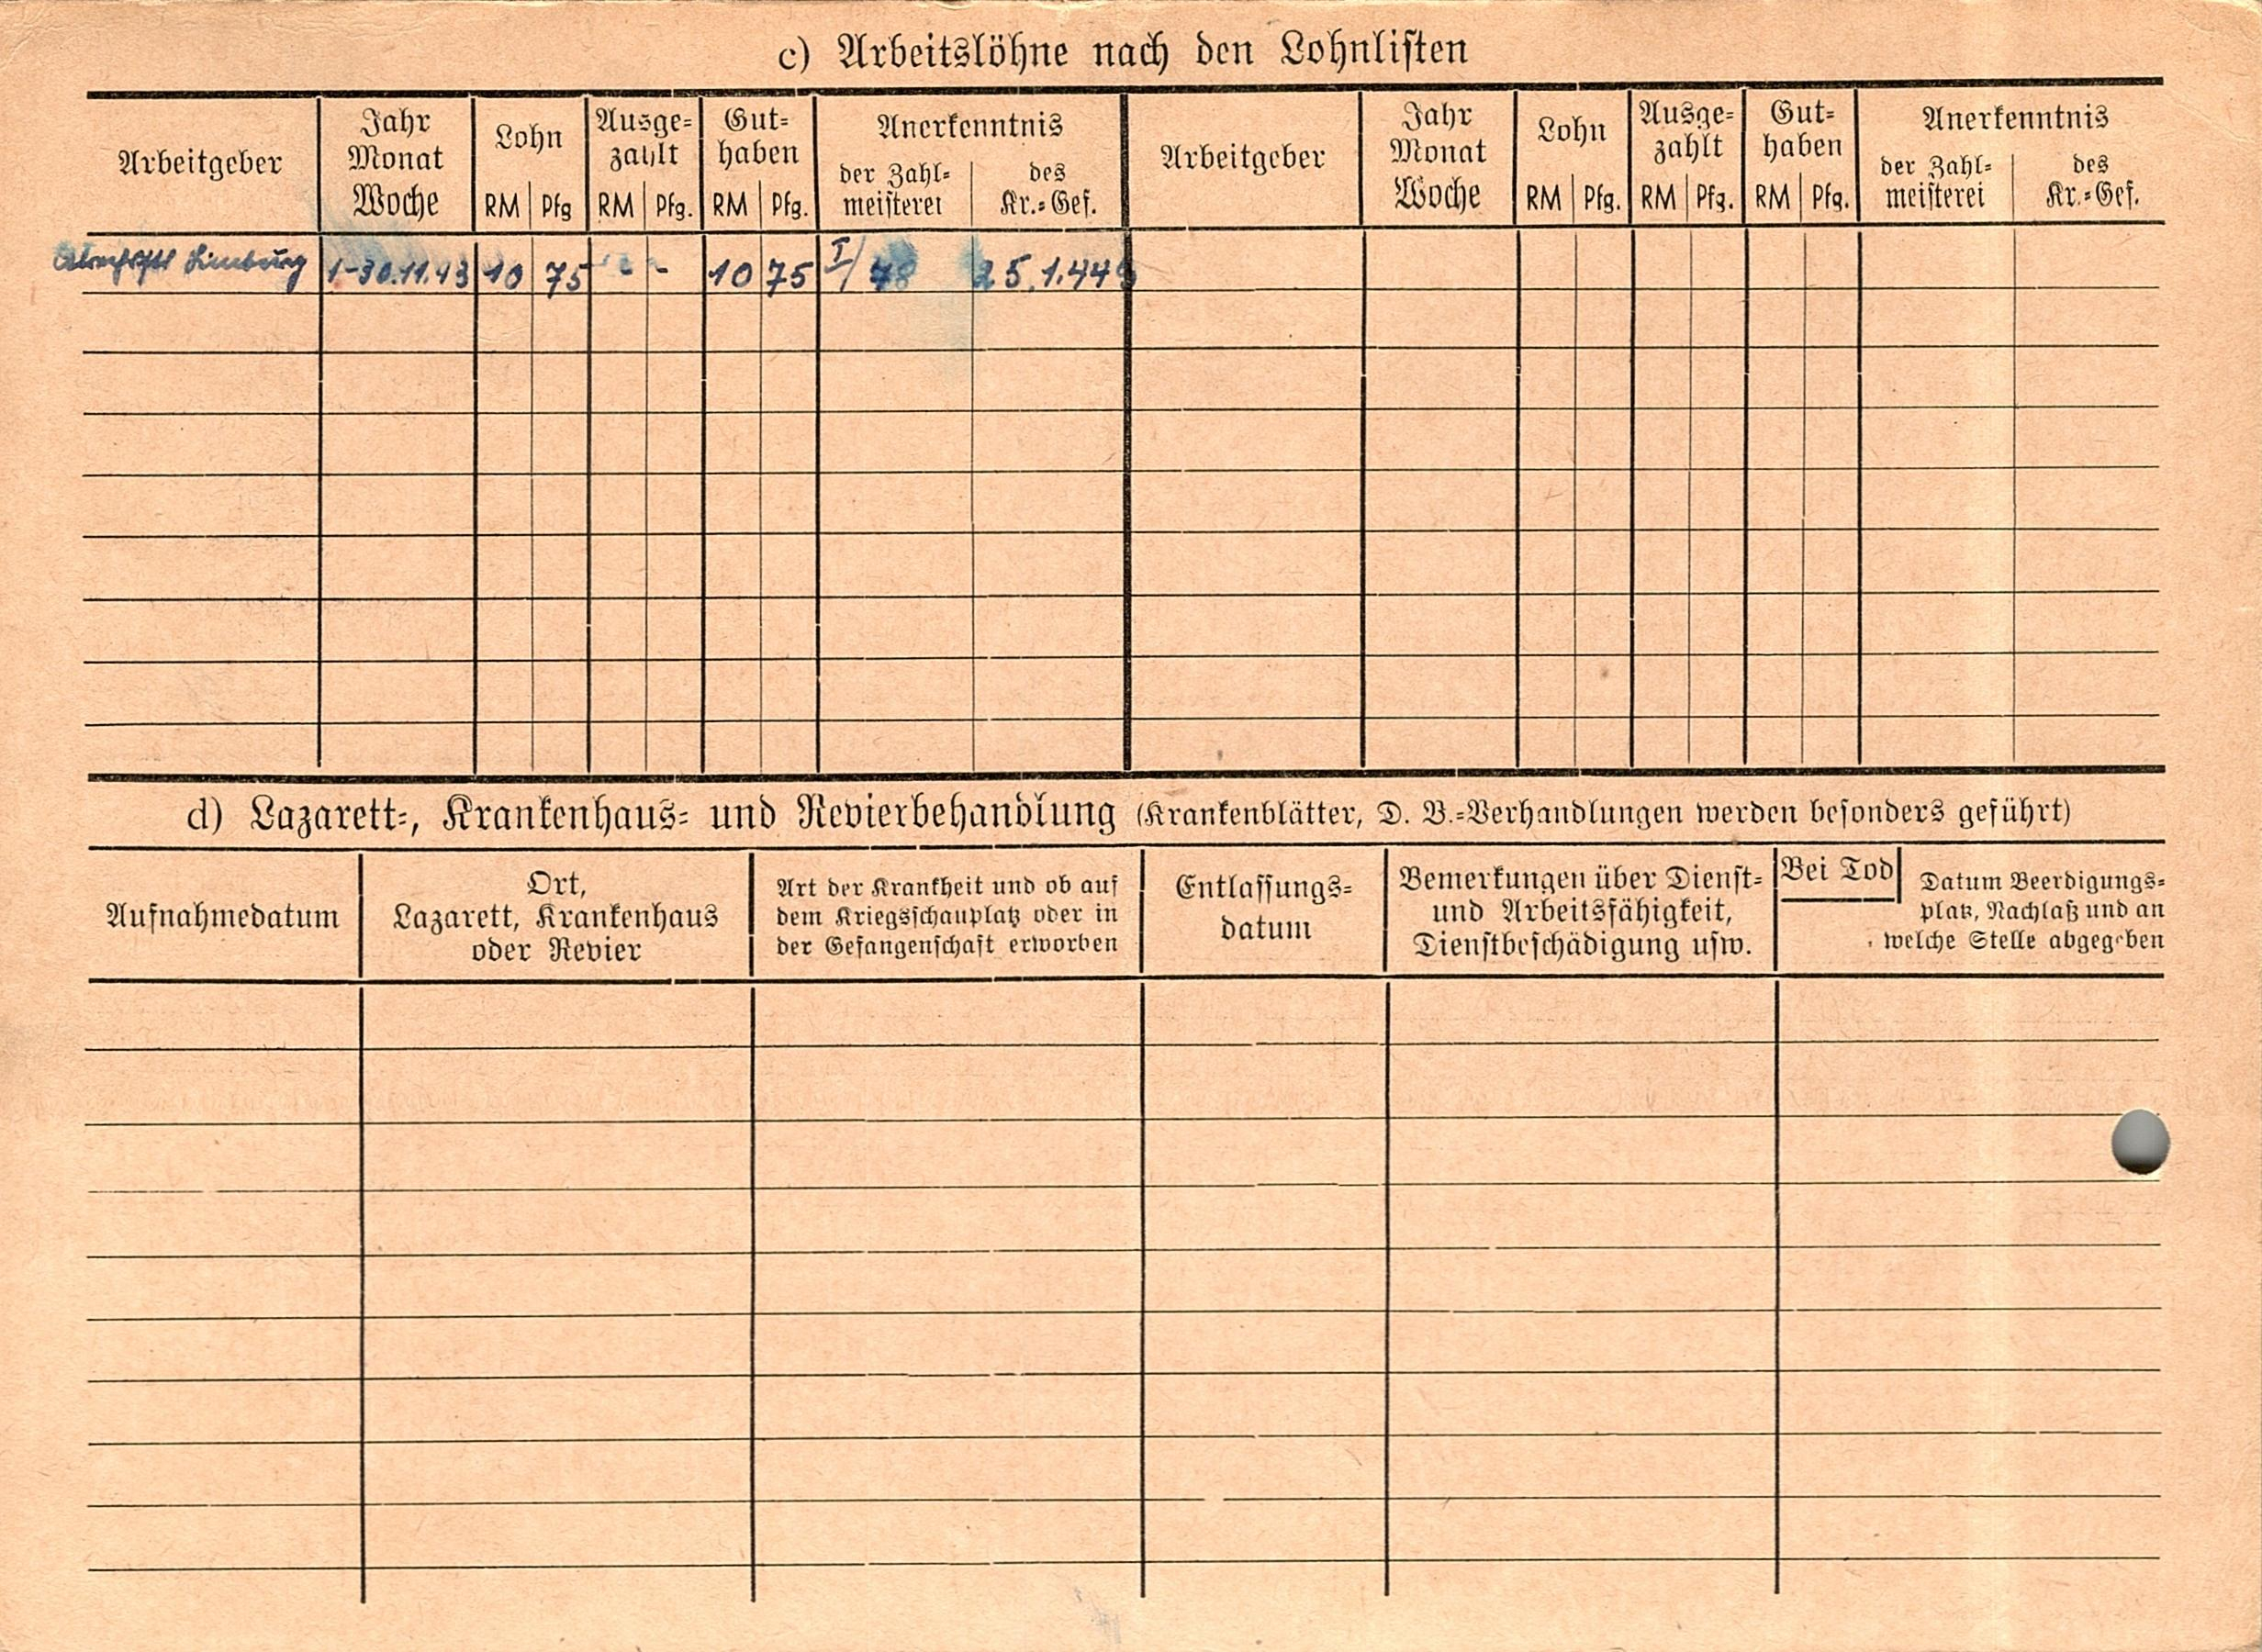 c) Arbeitslöhne nach den Lohnlisten
Arbeitgeber
Jahr
Monat
Woche
Lohn
RM Pfg
Ausge-
zahlt
RM Pfg.
Gut-
haben
RM Pfg.
Anerkenntnis
der Zahl-
meisterei
des
Kr.-Gef.
Arbeitgeber
Jahr
Monat
Woche
Lohn
RM Pfg.
Ausge-
zahlt
RM Pfg.
Gut-
haben
RM Pfg.
Anerkenntnis
der Zahl-
meisterei
des
Kr.-Gef.
Limburg 1-30.11.43 10 75 - - 10 75 I/ 78 25.1.44
d) Lazarett-, Krankenhaus- und Revierbehandlung (Krankenblätter, D. B.-Verhandlungen werden besonders geführt)
Aufnahmedatum
Ort,
Lazarett, Krankenhaus
oder Revier
Art der Krankheit und ob auf
dem Kriegsschauplatz oder in
der Gefangenschaft erworben
Entlassungs-
datum
Bemerkungen über Dienst-
und Arbeitsfähigkeit,
Dienstbeschädigung usw.
Bei Tod
Datum Beerdigungs-
platz, Nachlaß und an
welche Stelle abgegeben